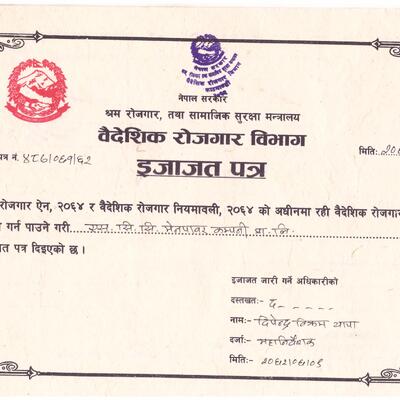 नेपाल सरकार
श्रम रोजगार, तथा सामाजिक सुरक्षा मन्त्रालय
वैदेशिक रोजगार विभाग
इजाजत पत्र
पत्र नं. मिति:
रोजगार ऐन, २०६४ र वैदेशिक रोजगार नियमावली, २०६४ को अधीनमा रही वैदेशिक रोजगार
गर्न पाउने गरी एस. सि. सि. मेनपावर कम्पनी प्रा. लि.
पत्र दिइएको छ ।
इजाजत जारी गर्ने अधिकारीको
दस्तखत:- द
नाम:- दिपेन्द्र विक्रम थापा
दर्जा:- महानिर्देशक
मिति:-